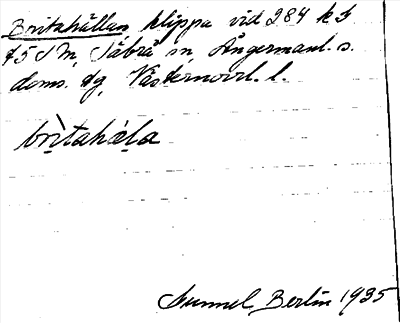 Britahällan, klippa vid 284 kb
45 S M, Säbrå sn, Ångermanl. s.
doms. tg, Västernorrl. l.
britahäla
Gunnel Berlin 1935